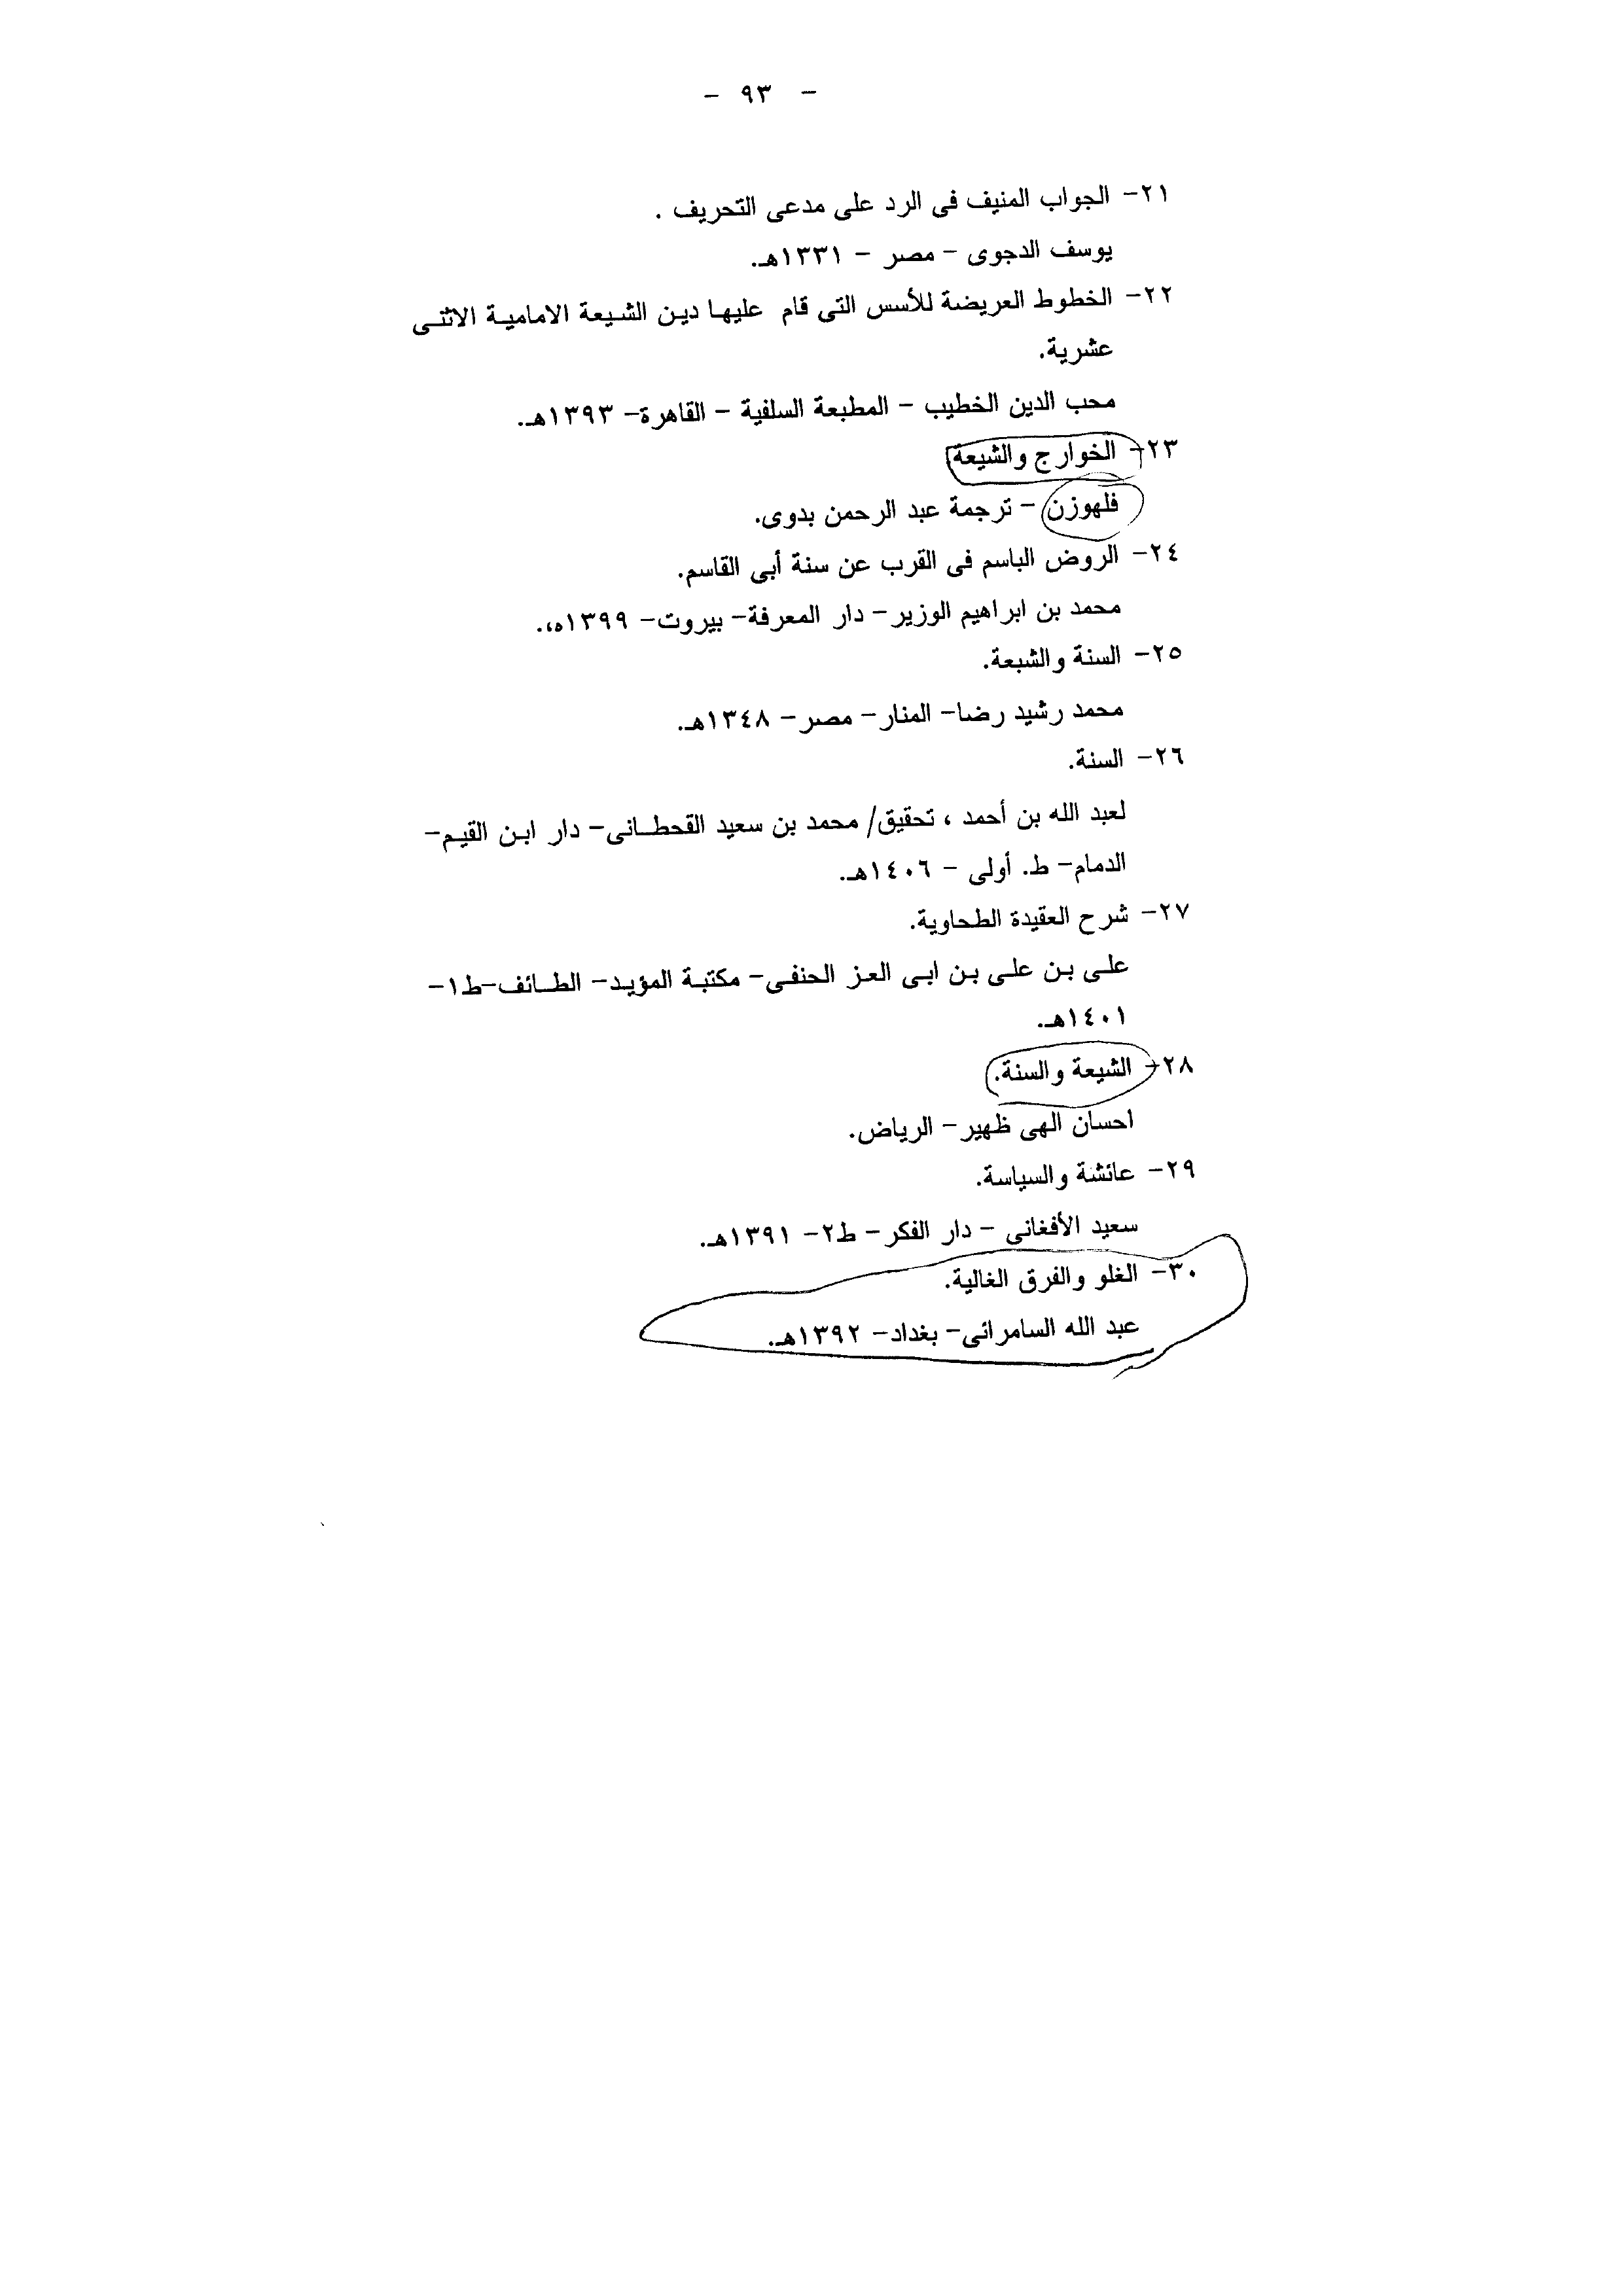 - ٩٣ -
٢١- الجواب المنيف فى الرد على مدعى التحريف .
يوسف الدجوى - مصر - ١٣٣١هـ.
٢٢- الخطوط العريضة للأسس التى قام عليها دين الشيعة الامامية الاثنى
عشرية.
محب الدين الخطيب - المطبعة السلفية - القاهرة- ١٣٩٣هـ.
٢٣- الخوارج والشيعة
فلهوزن - ترجمة عبد الرحمن بدوى.
٢٤- الروض الباسم فى القرب عن سنة أبى القاسم.
محمد بن ابراهيم الوزير- دار المعرفة- بيروت- ١٣٩٩ه،.
٢٥- السنة والشبعة.
محمد رشيد رضا- المنار- مصر- ١٣٤٨هـ.
٢٦- السنة.
لعبد الله بن أحمد ، تحقيق/ محمد بن سعيد القحطانى- دار ابن القيم-
الدمام- ط. أولى - ١٤٠٦هـ.
٢٧- شرح العقيدة الطحاوية.
على بن على بن ابى العز الحنفى- مكتبة المؤيد- الطائف-ط١-
١٤٠١هـ.
٢٨- الشيعة والسنة.
احسان الهى ظهير- الرياض.
٢٩- عائشة والسياسة.
سعيد الأفغانى - دار الفكر- ط٢- ١٣٩١هـ.
٣٠- الغلو والفرق الغالية.
عبد الله السامرائى- بغداد- ١٣٩٢هـ.